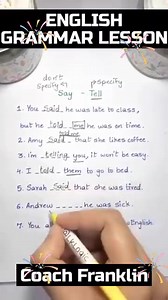 ENGLISH
GRAMMAR LESSON
don't specify
specify
Say - Tell
1. You said he was late to class,
but he told me he was on time.
told me
2. Amy said that she likes coffee.
3. I'm telling you, it won't be easy.
4. I told them to go to bed.
5. Sarah said that she was tired.
6. Andrew _ _ _ _ _ he was sick.
7. You
English.
Coach Franklin